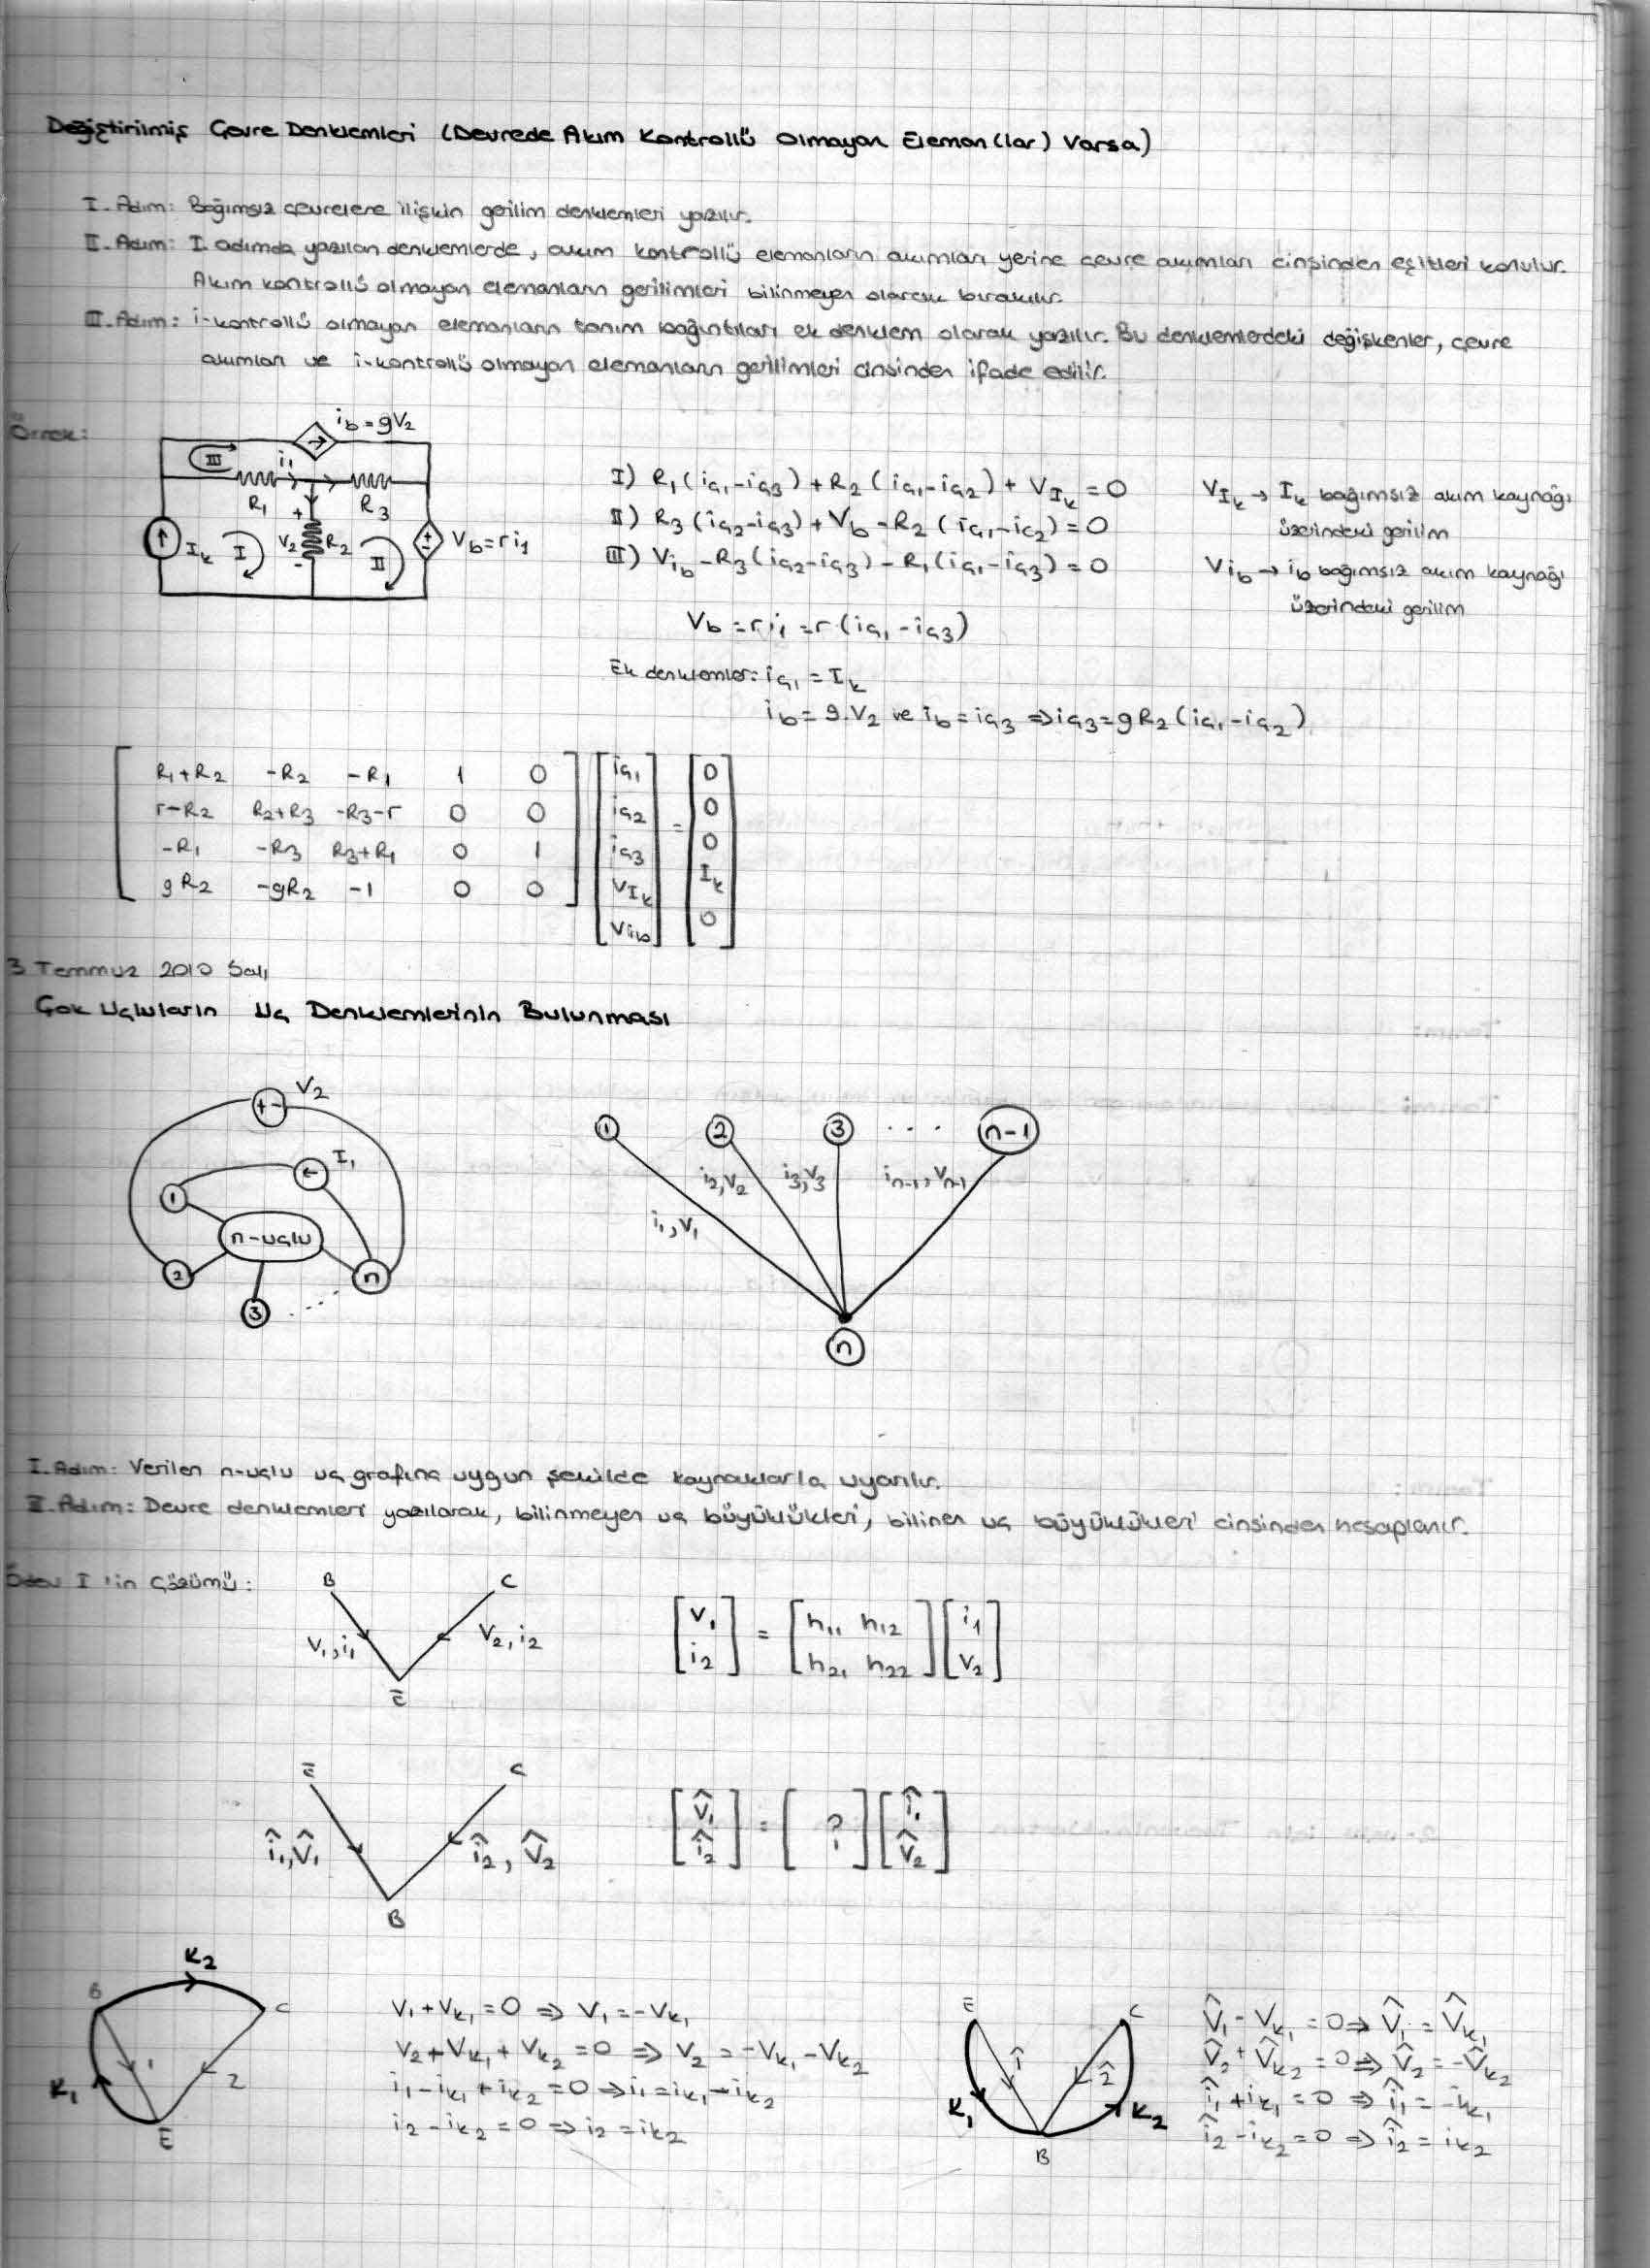 Değiştirilmiş Çevre Denklemleri (Devrede Akım Kontrollü Olmayan Eleman(lar) Varsa)
I. Adım: Bağımsız çevrelere ilişkin gerilim denklemleri yazılır.
II. Adım: I. adımda yazılan denklemlerde, akım kontrollü elemanların akımları yerine çevre akımları cinsinden eşitleri konulur.
Akım kontrollü olmayan elemanların gerilimleri bilinmeyen olarak bırakılır.
III. Adım: i-kontrollü olmayan elemanların tanım bağıntıları ek denklem olarak yazılır. Bu denklemlerdeki değişkenler, çevre
akımları ve i-kontrollü olmayan elemanların gerilimleri cinsinden ifade edilir.
Örnek:
i_b = gV₂
III
i₁
R₁
R₃
I_k
I
V₂
+
-
R₂
II
V_b = r i₁
I) R₁(i_ç₁ - i_ç₃) + R₂(i_ç₁ - i_ç₂) + V_{I_k} = 0
II) R₃(i_ç₂ - i_ç₃) + V_b - R₂(i_ç₁ - i_ç₂) = 0
III) V_{i_b} - R₃(i_ç₂ - i_ç₃) - R₁(i_ç₁ - i_ç₃) = 0
V_{I_k} → I_k bağımsız akım kaynağı
üzerindeki gerilim
V_{i_b} → i_b bağımsız akım kaynağı
üzerindeki gerilim
V_b = r i₁ = r(i_ç₁ - i_ç₃)
Ek denklemler: i_ç₁ = I_k
i_b = g.V₂ ve i_b = i_ç₃ ⇒ i_ç₃ = gR₂(i_ç₁ - i_ç₂)
[ R₁+R₂ -R₂ -R₁ 1 0 ] [ i_ç₁ ] = [ 0 ]
[ r-R₂ R₂+R₃ -R₃-r 0 0 ] [ i_ç₂ ] [ 0 ]
[ -R₁ -R₃ R₃+R₁ 0 1 ] [ i_ç₃ ] [ 0 ]
[ gR₂ -gR₂ -1 0 0 ] [ V_{I_k} ] [ I_k ]
[ V_{i_b} ] [ 0 ]
3 Temmuz 2010 Salı
Çok Uçluların Uç Denklemlerinin Bulunması
V₂
+ -
I₁
1
n-uçlu
2
n
3
1 2 3 ... n-1
i₂,V₂ i₃,V₃ i_{n-1},V_{n-1}
i₁,V₁
n
I. Adım: Verilen n-uçlu uç grafına uygun şekilde kaynaklarla uyarılır.
II. Adım: Devre denklemleri yazılarak, bilinmeyen uç büyüklükleri, bilinen uç büyüklükleri cinsinden hesaplanır.
Ödev I 'in Çözümü:
B C
V₁,i₁ V₂,i₂
E
[ V₁ ] = [ h₁₁ h₁₂ ] [ i₁ ]
[ i₂ ] [ h₂₁ h₂₂ ] [ V₂ ]
E C
î₁,V̂₁ î₂, V̂₂
B
[ V̂₁ ] = [ ? ] [ î₁ ]
[ î₂ ] [ V̂₂ ]
k₂
B C
1 2
k₁
E
V₁ + V_k₁ = 0 ⇒ V₁ = -V_k₁
V₂ + V_k₁ + V_k₂ = 0 ⇒ V₂ = -V_k₁ - V_k₂
i₁ - i_k₁ + i_k₂ = 0 ⇒ i₁ = i_k₁ - i_k₂
i₂ - i_k₂ = 0 ⇒ i₂ = i_k₂
E C
1̂ 2̂
k₁ k₂
B
V̂₁ - V_k₁ = 0 ⇒ V̂₁ = V̂_k₁
V̂₂ + V̂_k₂ = 0 ⇒ V̂₂ = -V̂_k₂
î₁ + i_k₁ = 0 ⇒ î₁ = -i_k₁
î₂ - i_k₂ = 0 ⇒ î₂ = i_k₂